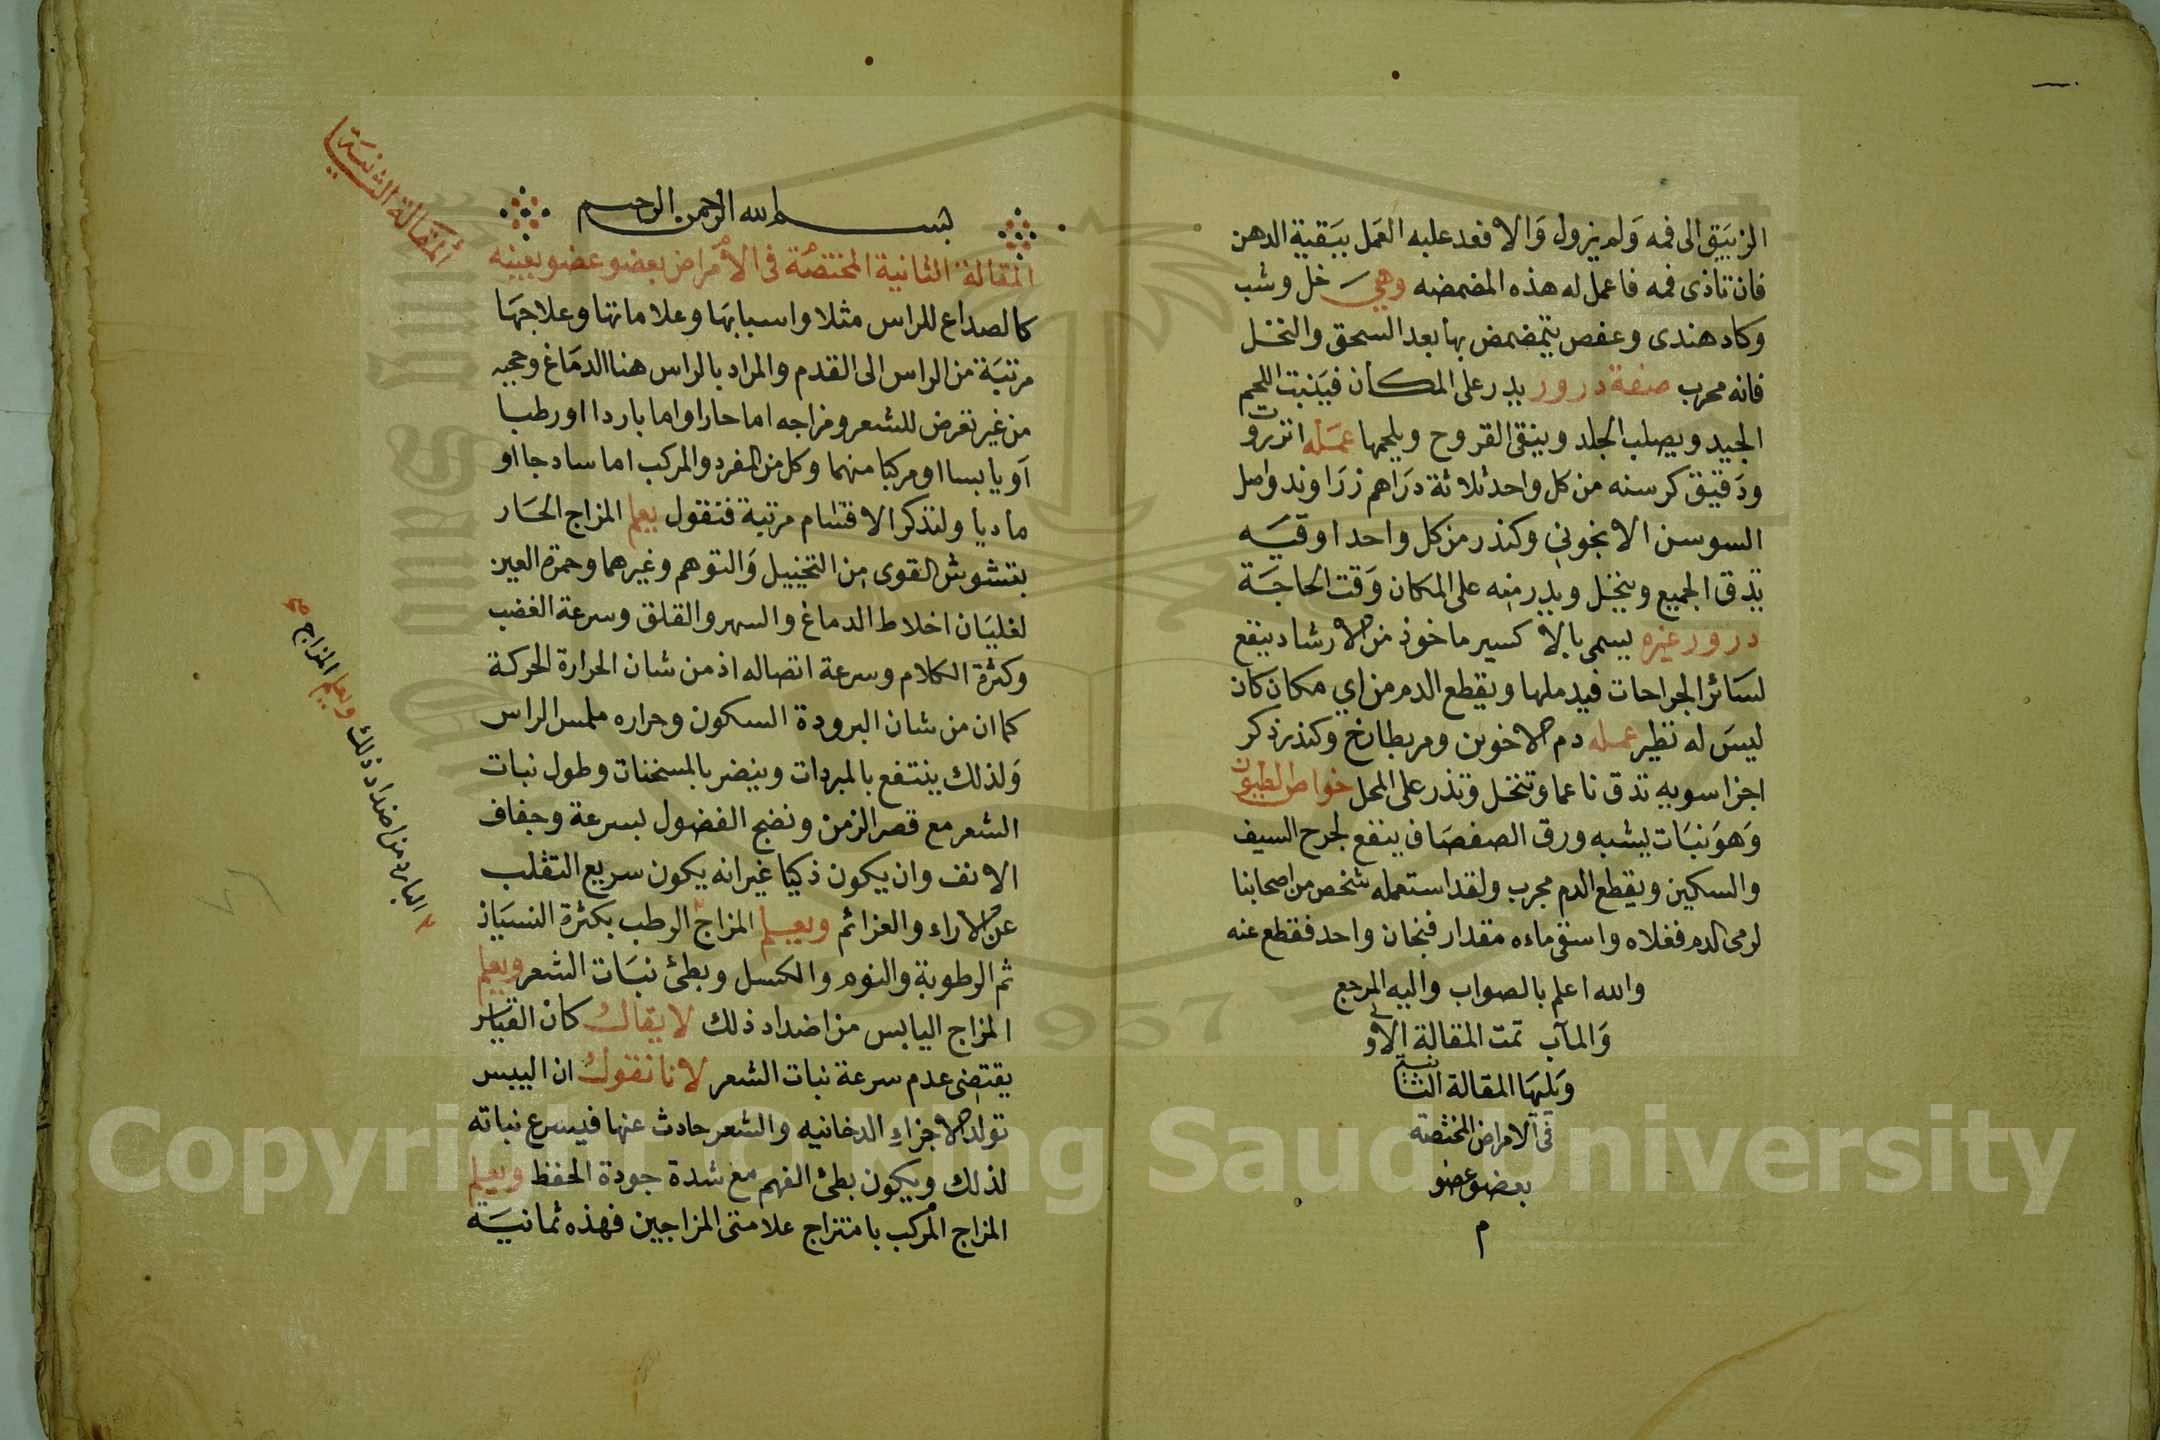 الزيبق الى فمه ولم يزول والا فعد عليه العمل ببقية الدهن
فان تاذى فمه فاعمل له هذه المضمضه وهي خل وشب
وكاد هندى وعفص يتمضمض بها بعد السحق والنخل
فانه مجرب صفة درور يدر على المكان فينبت اللحم
الجيد ويصلب الجلد وينقى القروح ويلحمها عمله انزروت
ودقيق كرسنه من كل واحد ثلاثة دراهم زراوند واصل
السوسن الانجوني وكندر من كل واحد اوقيه
تدق الجميع وينخل ويدر منه على المكان وقت الحاجة
درور غيره يسمى بالاكسير ماخوذ من الارشاد ينفع
لسائر الجراحات فيدملها ويقطع الدم من اي مكان كان
ليس له نظير عمله دم الاخوين ومر بطارخ وكندر ذكر
اجزا سويه تدق ناعما وتنخل وتذر على المحل خواص الطيون
وهو نبات يشبه ورق الصفصاف ينفع لجرح السيف
والسكين ويقطع الدم مجرب ولقد استعمله شخص من اصحابنا
لرمى الدم فغلاه واستقى ماءه مقدار فنجان واحد فقطع عنه
والله اعلم بالصواب واليه المرجع
والمآب تمت المقالة الاولى
ويليها المقالة الثانية
فى الامراض المختصة
بعضو عضو
م
المقالة الثانية
بسم الله الرحمن الرحيم
المقالة الثانية المختصة فى الأمراض بعضو عضو بعينه
كالصداع للراس مثلا واسبابها وعلاماتها وعلاجها
مرتبة من الراس الى القدم والمراد بالراس هنا الدماغ وحجبه
من غير تعرض للشعر ومزاجه اما حارا واما باردا او رطبا
او يابسا او مركبا منهما وكل من المفرد والمركب اما سادجا او
ماديا ولنذكر الاقسام مرتبة فنقول يعلم المزاج الحار
بتشوش القوى من التخييل والتوهم وغيرهما وحمرة العين
لغليان اخلاط الدماغ والسهر والقلق وسرعة الغضب
وكثرة الكلام وسرعة اتصاله اذ من شان الحرارة الحركة
كما ان من شان البرودة السكون وحراره ملمس الراس
ولذلك ينتفع بالمبردات وينضر بالمسخنات وطول نبات
الشعر مع قصر الزمن ونضج الفضول بسرعة وجفاف
الانف وان يكون ذكيا غير انه يكون سريع التقلب
عن الاراء والعزائم ويعلم المزاج الرطب بكثرة النسيان
ثم الرطوبة والنوم والكسل وبطئ نبات الشعر ويعلم
المزاج اليابس من اضداد ذلك لا يقال كان القياس
يقتضى عدم سرعة نبات الشعر لانا نقول ان اليبس
تولد الاجزاء الدخانيه والشعر حادث عنها فيسرع نباته
لذلك ويكون بطئ الفهم مع شدة جودة الحفظ ويعلم
المزاج المركب بامتزاج علامتى المزاجين فهذه ثمانية
البارد من اضداد ذلك ويعلم المزاج صح
Copyright © King Saud University
1957